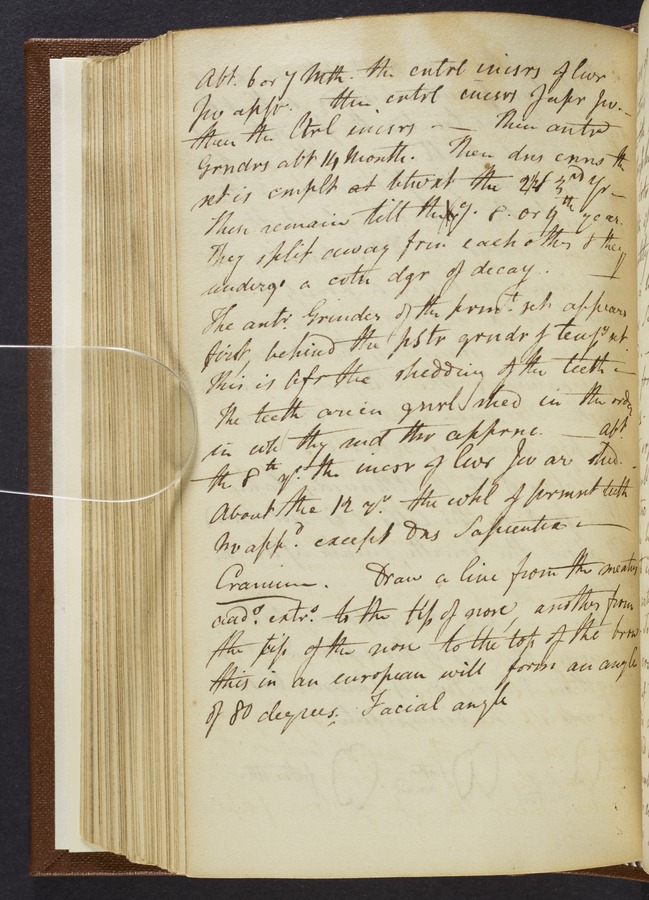 Abt. 6 or 7 Mth. the cntrl incisrs of lwr
Jw appr. then cntrl incisrs of upr Jw. —
then the ltrl incisrs — — Then antr
Grndrs abt 14 Month. Then dns cnns the
set is cmplt at btwxt the 2nd & 3rd Yr —
These remain till the 7. 8. or 9th year.
They split away from each other & they
undergo a crtn dgr of decay. . —
The antr. Grinder of the prmt. set appears
first, behind the pstr grndr of temp. set
This is bfr the shedding of the teeth —
The teeth are in gnrl shed in the order
in wh they md thr apprnc. — abt.
the 8th yr. the incsr of lwr Jw are shed.
About the 12 yr. the whl of prmnt teeth
hv appd. except Dns Sapientia —
Cranium. Draw a line from the meatus
audo. extr. to the tip of nose, another from
the tip of the nose to the top of the brow
this in an european will form an angle
of 80 degrees. Facial angle